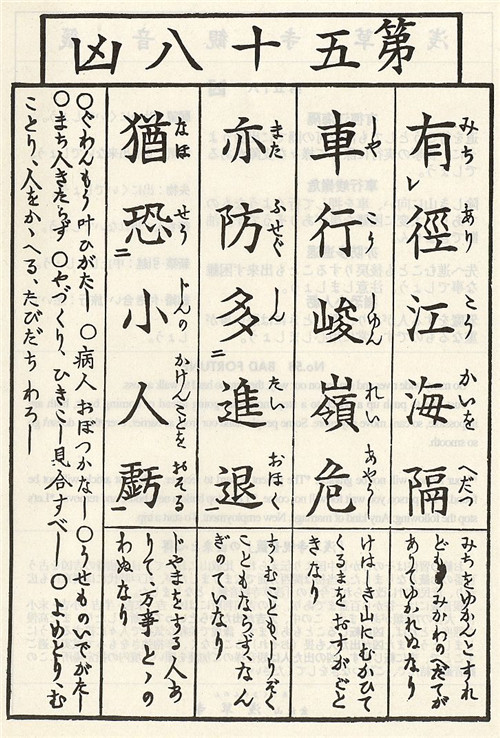 第五十八凶
有徑江海隔
みち あり こう かいを へだつ
レ
みちをゆかんとすれ
ども うみかわのへだてが
あつてゆかれぬなり
車行峻嶺危
や こう しゅん れい あやうし
けはしき山にむかひて
くるまをおすがごと
きなり
亦防多進退
また ふせぐ しん たい おほく
二 一
すゝむことも しりぞく
こともならず、なん
ぎていなり
猶恐小人虧
なほ せう じんの かけんことを おそる
二 一
じやまをする人あ
りて 万事とゝの
わぬなり
〇ぐわんもう叶ひがたし 〇病人おぼつかなし 〇うせものいでがたし
〇まち人きたらず 〇やづくり、ひきこし見合すべし 〇よめとり、む
ことり、人をかゝへる、たびだち わろし